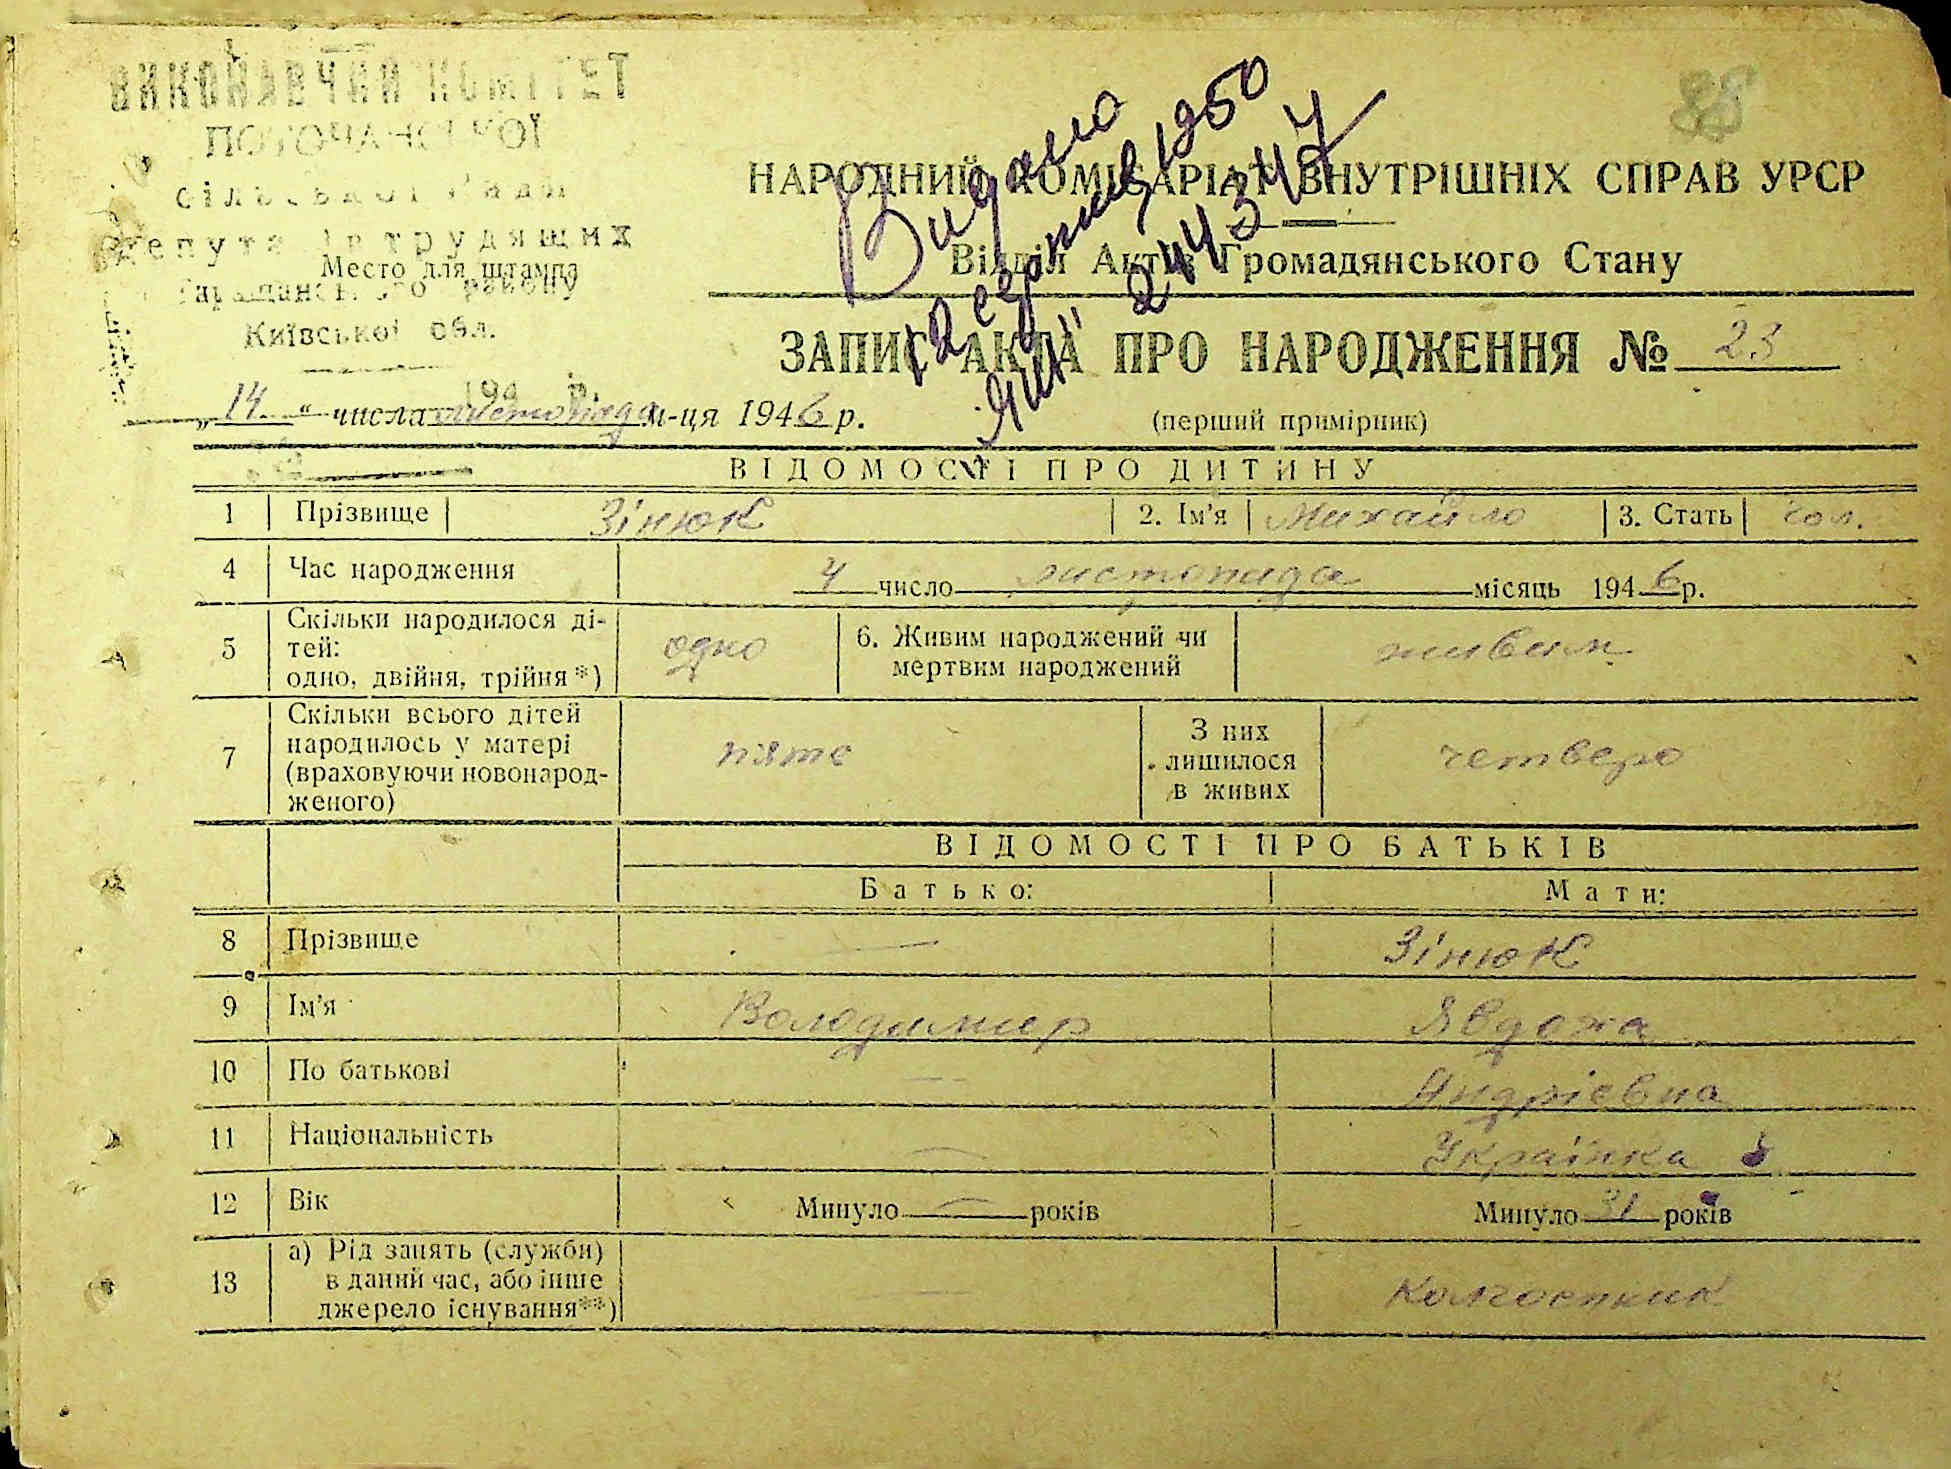 ВИКОНАВЧИЙ КОМІТЕТ
сільської ради
депутатів трудящих
Место для штампа
району
Київської обл.
194 р.
Видано
12 серпня 1950
244347
88
НАРОДНИЙ КОМІСАРІАТ ВНУТРІШНІХ СПРАВ УРСР
Відділ Актів Громадянського Стану
ЗАПИС АКТА ПРО НАРОДЖЕННЯ № 23
„14“ числа листопада м-ця 1946 р.
(перший примірник)
ВІДОМОСТІ ПРО ДИТИНУ
1 Прізвище Зінюк 2. Ім'я Михайло 3. Стать чол.
4 Час народження 4 число листопада місяць 1946 р.
5 Скільки народилося ді-
тей:
одно, двійня, трійня*) одно 6. Живим народжений чи
мертвим народжений живим
7 Скільки всього дітей
народилось у матері
(враховуючи новонарод-
женого) пяте З них
лишилося
в живих четверо
ВІДОМОСТІ ПРО БАТЬКІВ
Батько: Мати:
8 Прізвище — Зінюк
9 Ім'я Володимир Явдоха
10 По батькові — Андрієвна
11 Національність — Українка
12 Вік Минуло — років Минуло 31 років
13 а) Рід занять (служби)
в даний час, або інше
джерело існування**) — Колгоспник